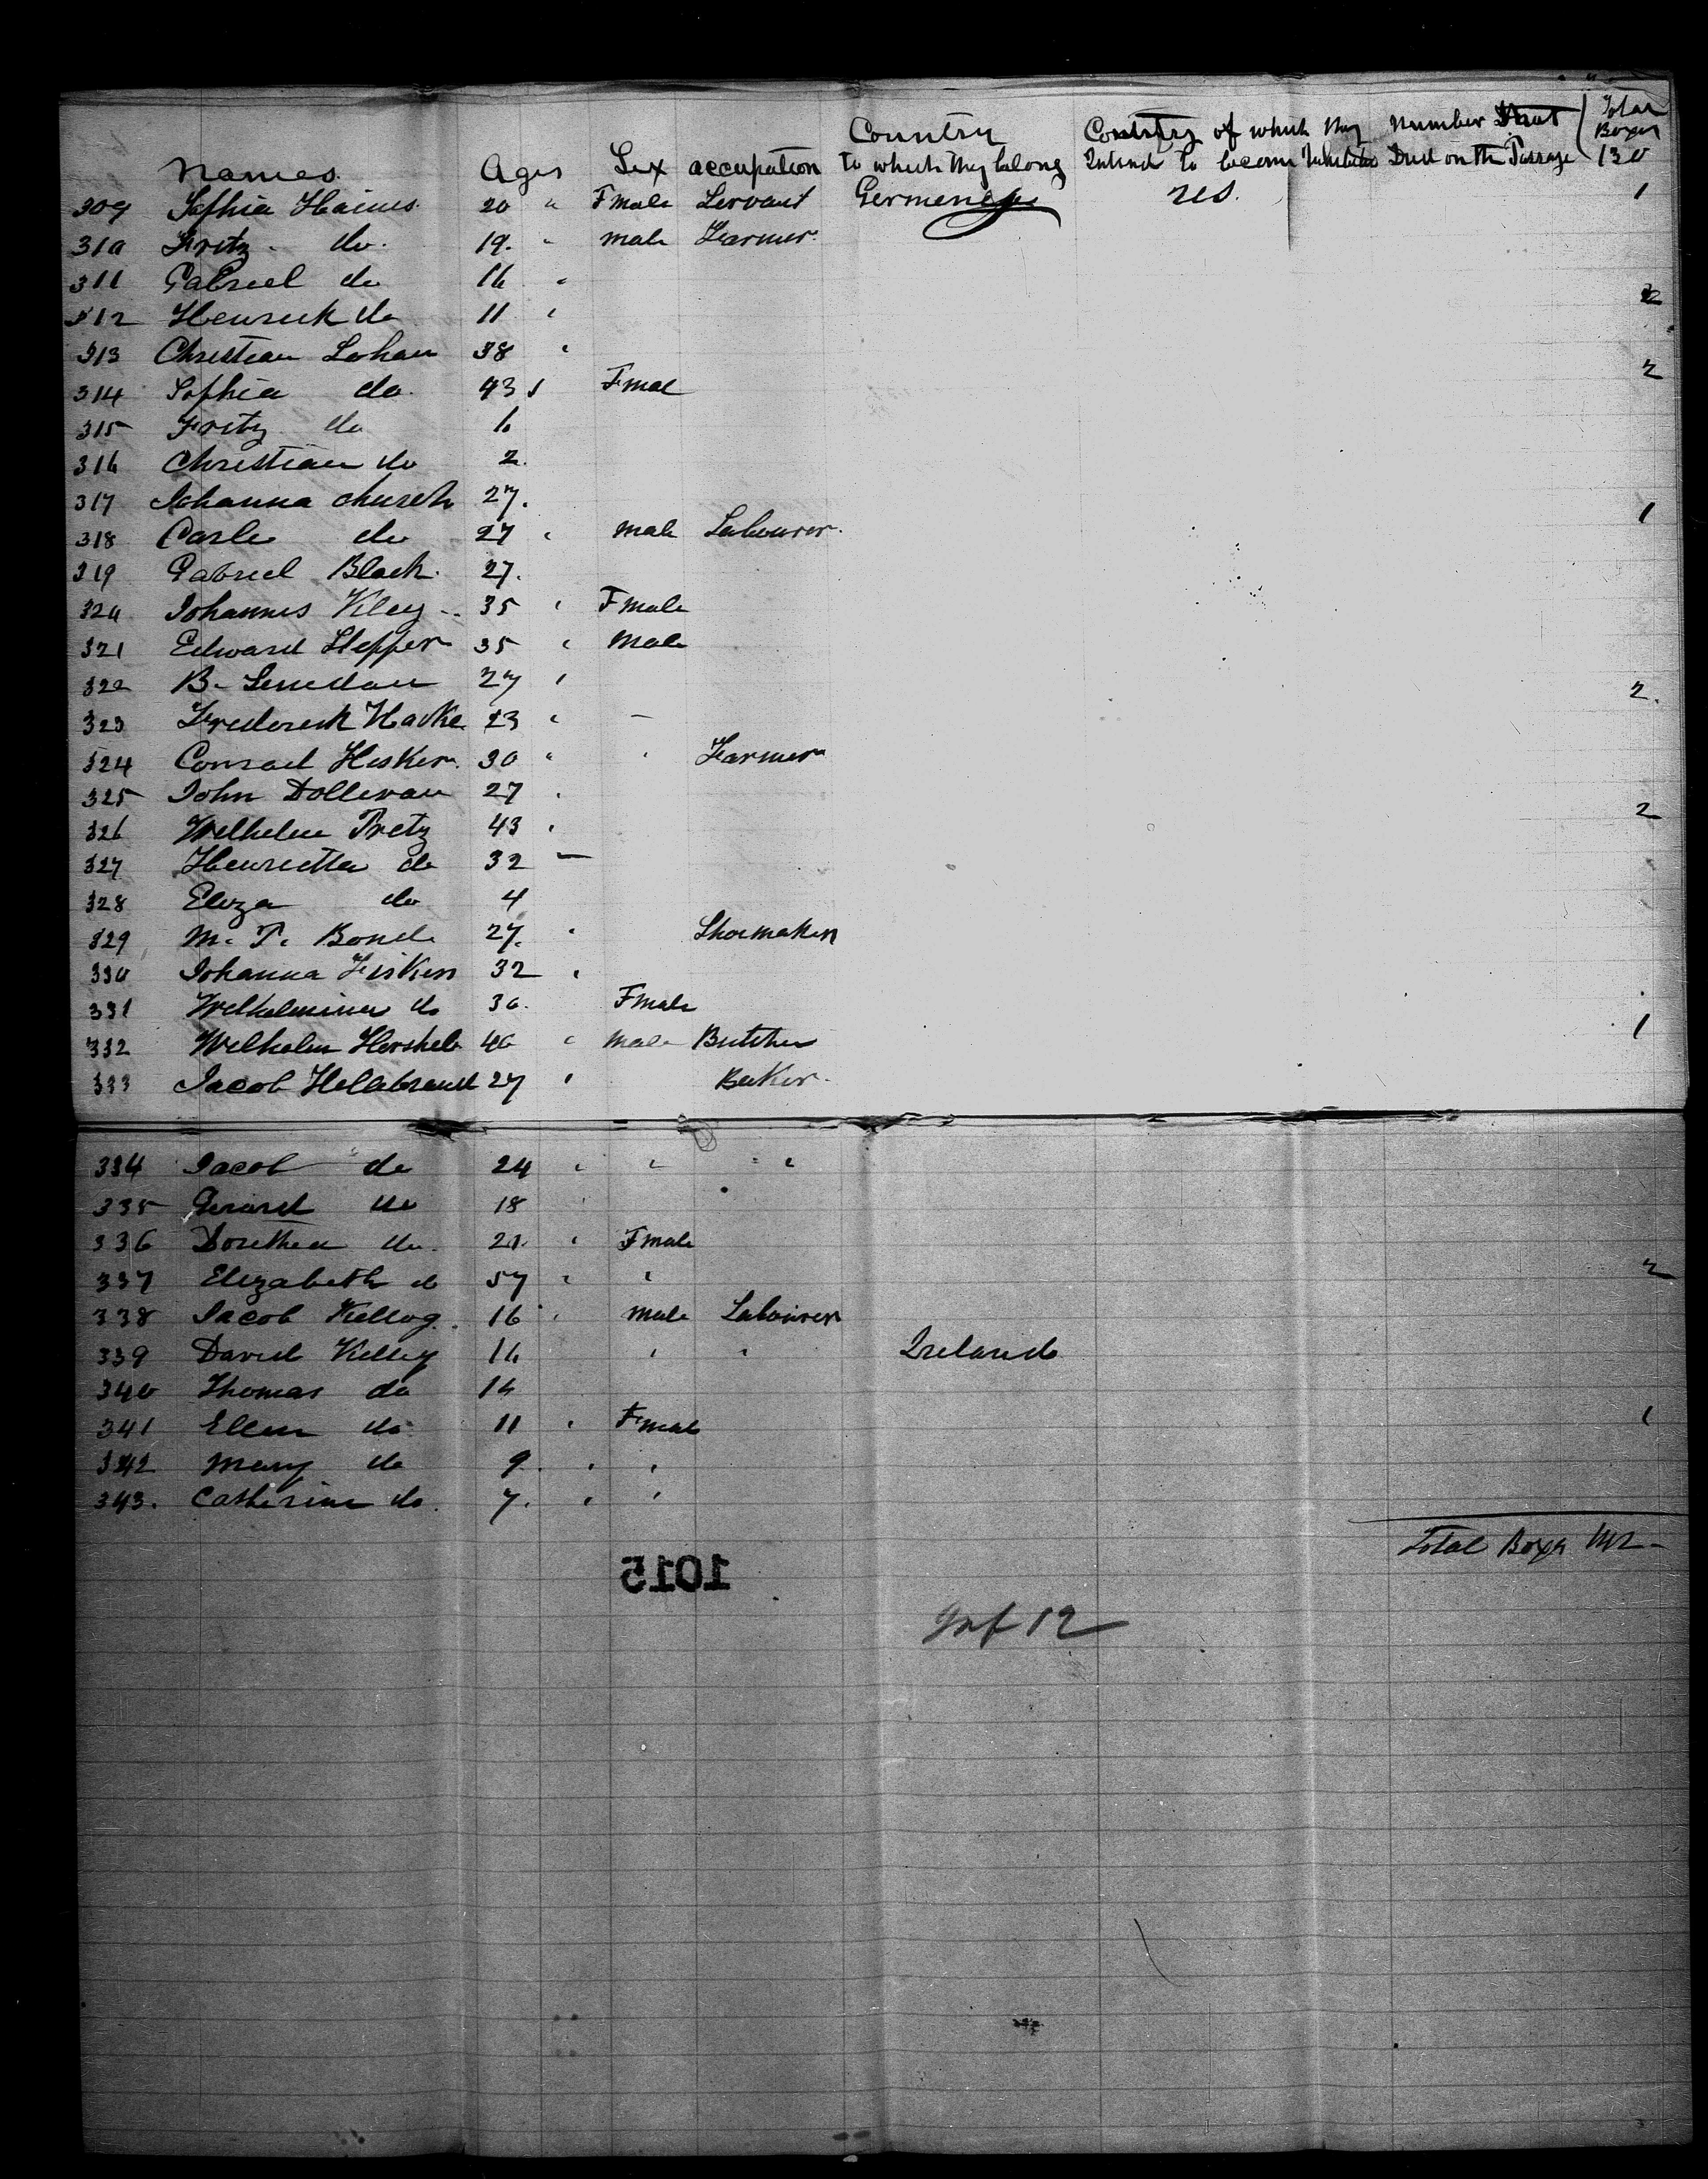 Country Country of which they Number Total Boxes
Names. Ages Sex occupation to which they belong Intend to become Died on the Passage 130
309 Sophia Haines 20 " Fmale Servant Germeney U.S. 1
310 Fritz do. 19. " male Farmer.
311 Gabriel do 16 "
312 Henrick do 11 " 2
313 Christian Lohan 38 "
314 Sophia do. 43 " Fmal 2
315 Fritz do 6
316 Christian do 2.
317 Johanna church 27. 1
318 Carle do 27 " male Labourer.
319 Gabriel Black. 27.
320 Johannes Kley 35 " Fmale
321 Edward Hepper 35 " male
322 B. 27 " 2.
323 Frederick Hacke 23 " -
324 Conrad Hesker. 30 " " Farmer
325 John Dollevan 27 "
326 Welhelm Pretz 43 " 2
327 Henrietta do 32 -
328 Eliza do 4
329 M. P. Bond. 27. " Shoemaker
330 Johanna Fisken 32 "
331 Welhelmina do 36. Fmale
332 Welhelm Hershel 46 " male Butcher 1
333 Jacob Hellebrand 27 " Baker.
334 Jacob do 24 " " "
335 Gerard do 18 "
336 Dorethea do. 21. " Fmale
337 Elizabeth do 57 " " 2
338 Jacob Kellog. 16 " male Labourer
339 David Kelley 16 " " Ireland
340 Thomas do 14
341 Ellen do 11 " Fmale 1
342 Mary do 9. " "
343. Catherine do. 7. " "
Total Boxes 142
1015
Inf 12